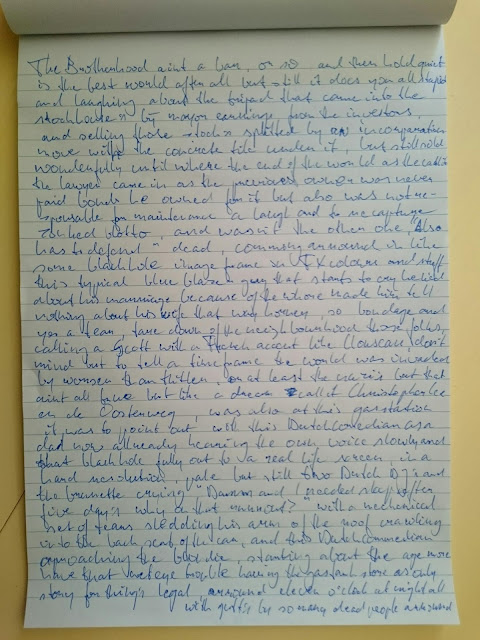 The Brotherhood aint a bar, or so and then hold quiet
is the best world after all but still it does you all
and laughing about the tripod that came into the
stockhouses by major earnings from the investors,
and selling those stocks splitted by an incorporation
now with the concrete tile under it, but still old
wonderfully until where the end of the world as the
the lawyer came in as the previous owner was never
paid bonds he owned for it but also was not re-
sponsable for maintenance a laugh and to me
blotto, and wasn't the other one, "also
has to defend" dead, comming arround in like
some blackhole image frame in colour and stuff
this typical blue blazer guy that starts to cry he lied
about his marriage because of the whore made him tell
nothing about his wife that was horney, so bondage and
yes a tear, far down of the neighbourhood those folks,
calling a with a accent like Clouseau don't
mind but to tell a time frame the world was invaded
by worse than Hitler, or at least the nazi's but that
aint all but like a dream called Christopher Lee
en de Oosterweg, was also at this gasstation
it was to point out with this Dutch Comedian as a
dad now allready hearing the own voice slowly and
that blackhole fully out to a real life screen, in a
hard resolution, pale but still two Dutch DJ's and
the brunette crying "Damm and I needed sleep after
five day's why a that " with a mechanical
set of tears sledding his arms of the roof crawling
into the back seat of the car, and this Dutch Commedian
approaching the blondie, stambing about the age more
have that trouble having the gastank store as only
story for thing's legal, arround eleven o'clock at night all
with guts by so many dead people arround